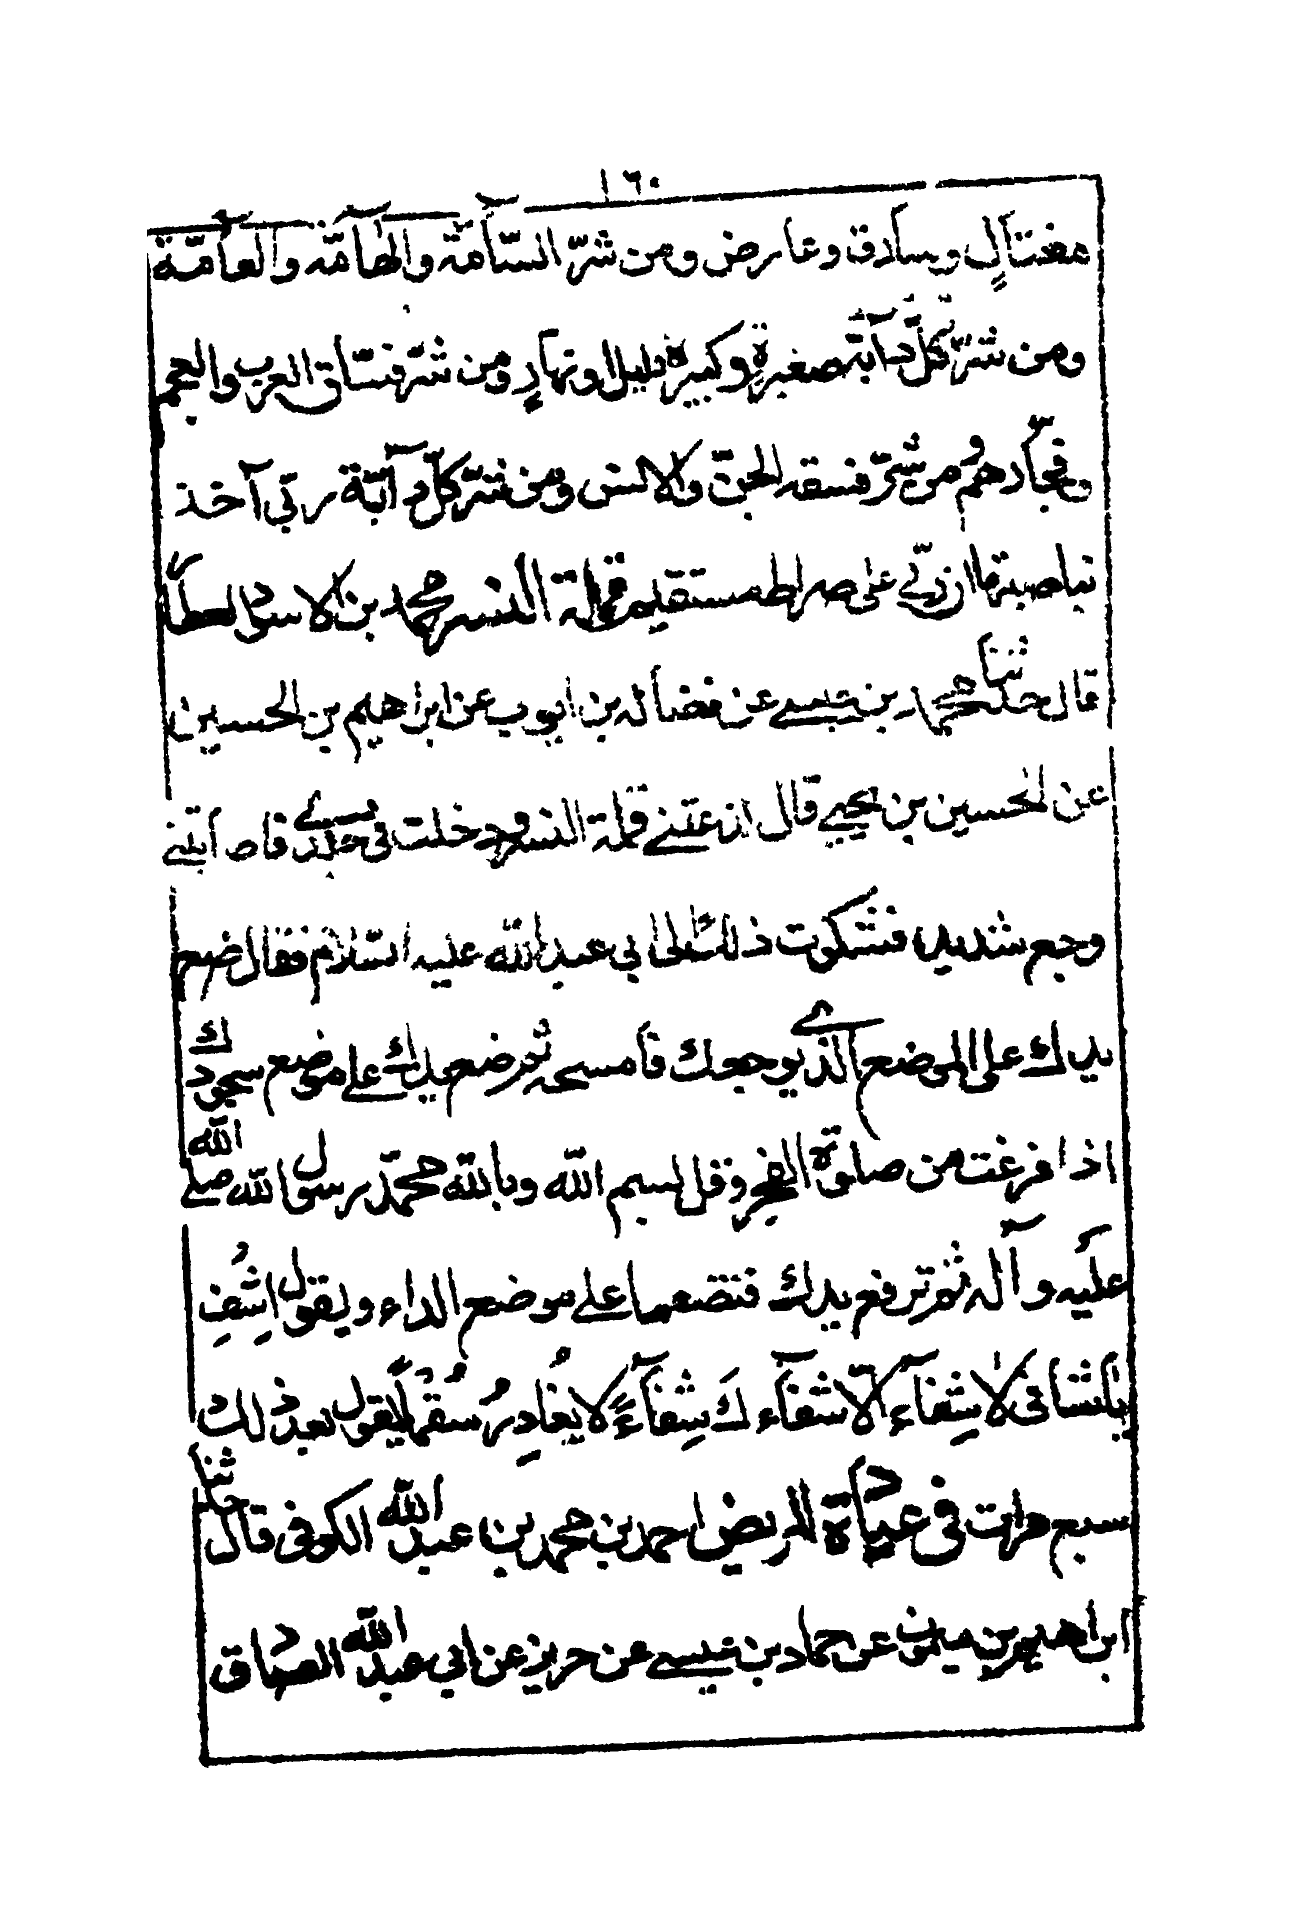 ١٦٠
مغتال وسارق وعارض ومن شرّ السّآمّة والهآمّة والعآمّة
ومن شرّ كلّ دآبّة صغيرة وكبيرة بليل او نهارٍ ومن شرّ فسّاق العرب والعجم
وفجّارهم ومن شرّ فسقة الجنّ والانس ومن شرّ كلّ دآبّة ربّي آخذ
بناصيتها ان ربّي على صراط مستقيم قملة النسر محمد بن الاسود العطار
قال حدثنا محمد بن عيسى عن فضالة بن ايوب عن ابراهيم بن الحسين
عن الحسين بن يحيى قال لذعتني قملة النسر ودخلت في جلدي فاصابتني
وجع شديد فشكوت ذلك الى ابي عبد الله عليه السّلام فقال ضع
يدك على الموضع الذي يوجعك فامسحه ثم ضع يدك على موضع سجودك
اذا فرغت من صلوة الفجر وقل بسم الله وبالله محمّد رسول الله صلى الله
عليه وآله ثم ترفع يدك فتضعها على موضع الداء ويقول اشف
يا شافي لا شفآء الّا شفآءك شفآءً لا يغادر سقمًا يقول بعد ذلك
سبع مرات في عيادة المريض احمد بن محمد بن عبد الله الكوفي قال حدثنا
ابراهيم بن ميمون عن حماد بن عيسى عن حريز عن ابي عبد الله الصادق